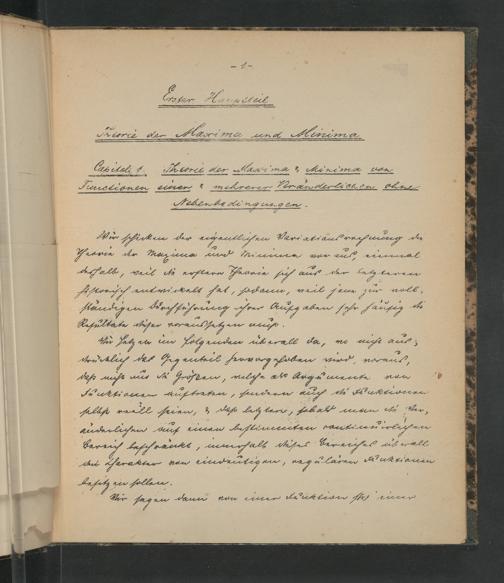 - 1 -
Erster Hauptteil
Theorie der Maxima und Minima.
Capitel 1. Theorie der Maxima & Minima von
Functionen einer & mehrerer Veränderlichen ohne
Nebenbedingungen.
Wir schicken der eigentlichen Variationsrechnung die
Theorie der Maxima und Minima voraus, einmal
deshalb, weil die erstere Theorie sich aus der letzteren
historisch entwickelt hat, sodann, weil jene zur voll-
ständigen Durchführung ihrer Aufgaben sehr häufig die
Resultate dieser voraussetzen muss.
Wir setzen im Folgenden überall da, wo nicht aus-
drücklich das Gegenteil hervorgehoben wird, voraus,
dass nicht nur die Größen, welche als Argumente von
Funktionen auftreten, sondern auch die Funktionen
selbst reell seien, & dass letztere, sobald man die Ver-
änderlichen auf einen bestimmten continuirlichen
Bereich beschränkt, innerhalb dieses Bereiches überall
den Charakter von eindeutigen, regulären Funktionen
besitzen sollen.
Wir sagen dann von einer Funktion einer